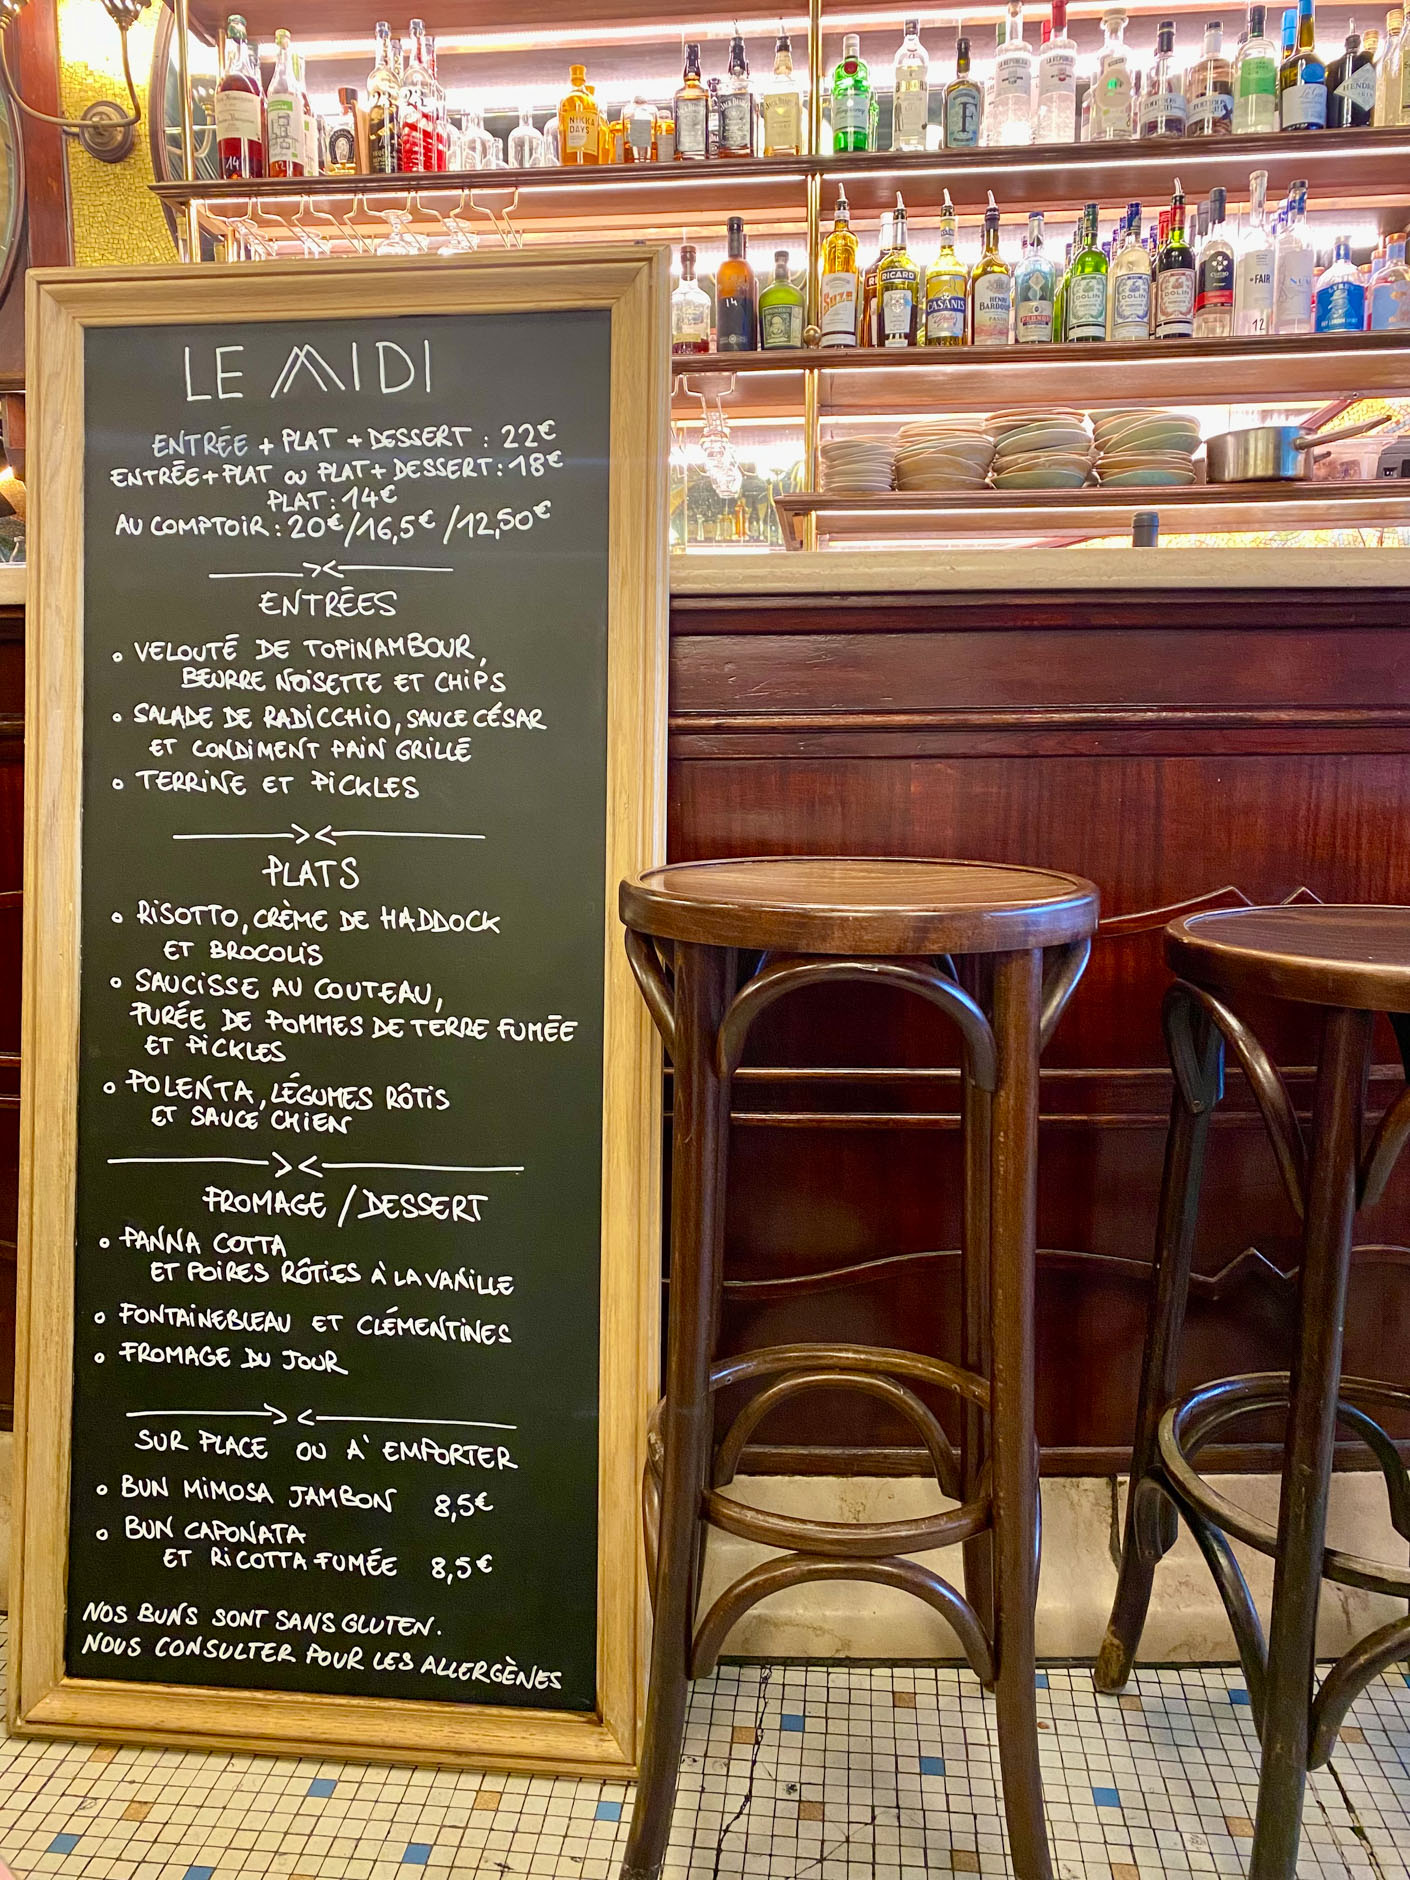 LE MIDI
ENTRÉE + PLAT + DESSERT : 22€
ENTRÉE + PLAT OU PLAT + DESSERT : 18€
PLAT : 14€
AU COMPTOIR : 20€/16,5€/12,50€
ENTRÉES
VELOUTÉ DE TOPINAMBOUR,
BEURRE NOISETTE ET CHIPS
SALADE DE RADICCHIO, SAUCE CÉSAR
ET CONDIMENT PAIN GRILLÉ
TERRINE ET PICKLES
PLATS
RISOTTO, CRÈME DE HADDOCK
ET BROCOLIS
SAUCISSE AU COUTEAU,
PURÉE DE POMMES DE TERRE FUMÉE
ET PICKLES
POLENTA, LÉGUMES RÔTIS
ET SAUCE CHIEN
FROMAGE / DESSERT
PANNA COTTA
ET POIRES RÔTIES À LA VANILLE
FONTAINEBLEAU ET CLÉMENTINES
FROMAGE DU JOUR
SUR PLACE OU À EMPORTER
BUN MIMOSA JAMBON 8,5€
BUN CAPONATA
ET RICOTTA FUMÉE 8,5€
NOS BUNS SONT SANS GLUTEN.
NOUS CONSULTER POUR LES ALLERGÈNES
NIKKA
DAYS
LA REPUBLIC
HENDRI
14
SUZE
RICARD
CASANIS
HENRI
BARDOUIN
PASTIS
PERNOD
DOLIN
DOLIN
DOLIN
FAIR
12